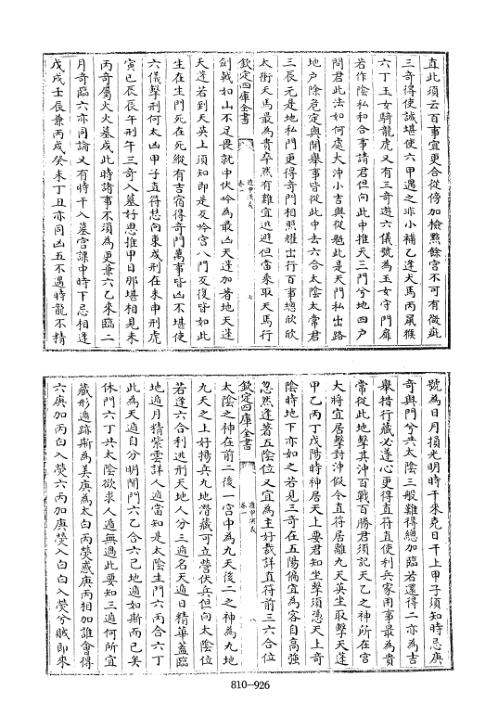 直此須云百事宜更合從傍加檢點餘宮不可有微疵
三奇得使誠堪使六甲遇之非小補乙逢犬馬丙鼠猴
六丁玉女騎龍虎又有三奇遊六儀號為玉女守門扉
若作陰私和合事請君但向此中推天三門兮地四户
問君此法如何處太沖小吉與從魁此是天門私出路
地户除危定與開舉事皆從此中去六合太陰太常君
三辰元是地私門更得奇門相照耀出行百事總欣欣
太衝天馬最為貴卒然有難宜逃避但當乘取天馬行
欽定四庫全書
遁甲演義
卷一
七
劍戟如山不足畏就中伏吟為最凶天逢加著地天逢
天逢若到天英上須知即是反吟宫八門反復皆如此
生在生門死在死縱有吉宿得奇門萬事皆凶不堪使
六儀擊刑何太凶甲子直符愁向東戌刑在未申刑虎
寅巳辰辰午刑午三奇入墓好思推甲日那堪相見未
丙奇屬火火墓戌此時諸事不須為更兼六乙來臨二
月奇臨六亦同論又有時干入墓宮課中時下忌相逢
戊戌壬辰兼丙戌癸未丁丑亦同凶五不遇時龍不精
號為日月損光明時干來克日干上甲子須知時忌庚
奇與門兮共太陰三般難得總加臨若還得二亦為吉
舉措行藏必遂心更得直符直使利兵家用事最為貴
常從此地擊其沖百戰百勝君須記天乙之神所在宮
大將宜居擊對沖假令直符居離九天英坐取擊天蓬
甲乙丙丁戊陽時神居天上要君知坐擊須憑天上奇
陰時地下亦如之若見三奇在五陽偏宜為客自高強
忽然逢著五陰位又宜為主好裁詳直符前三六合位
欽定四庫全書
遁甲演義
卷一
八
太陰之神在前二後一宮中為九天後二之神為九地
九天之上好揚兵九地潛藏可立營伏兵但向太陰位
若逢六合利逃刑天地人分三遁名天遁日精華蓋臨
地遁月精紫雲詳人遁當知是太陰生門六丙合六丁
此為天遁自分明開門六乙合六己地遁如斯而已矣
休門六丁共太陰欲求人遁無過此要知三遁何所宜
藏形遁跡斯為美庚為太白丙熒惑庚丙相加誰會得
六庚加丙白入熒六丙加庚熒入白白入熒兮賊即來
810-926